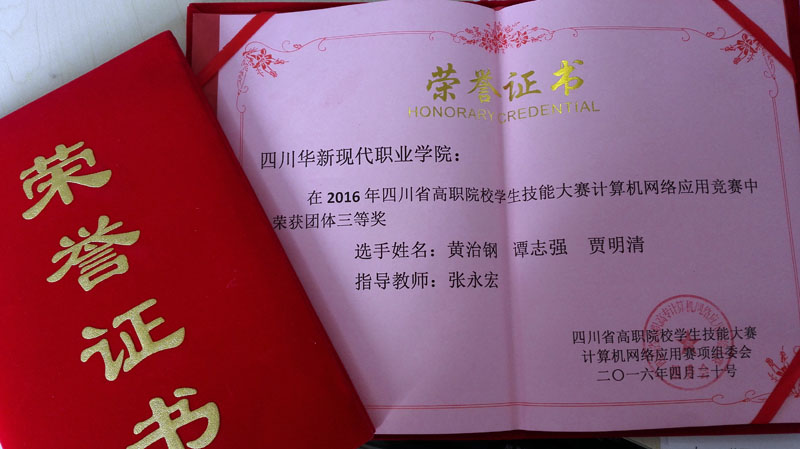 荣誉证书
荣誉证书
HONORARY CREDENTIAL
四川华新现代职业学院：
在2016年四川省高职院校学生技能大赛计算机网络应用竞赛中
荣获团体三等奖
选手姓名：黄治钢 谭志强 贾明清
指导教师：张永宏
四川省高职院校学生技能大赛
计算机网络应用赛项组委会
二〇一六年四月二十号